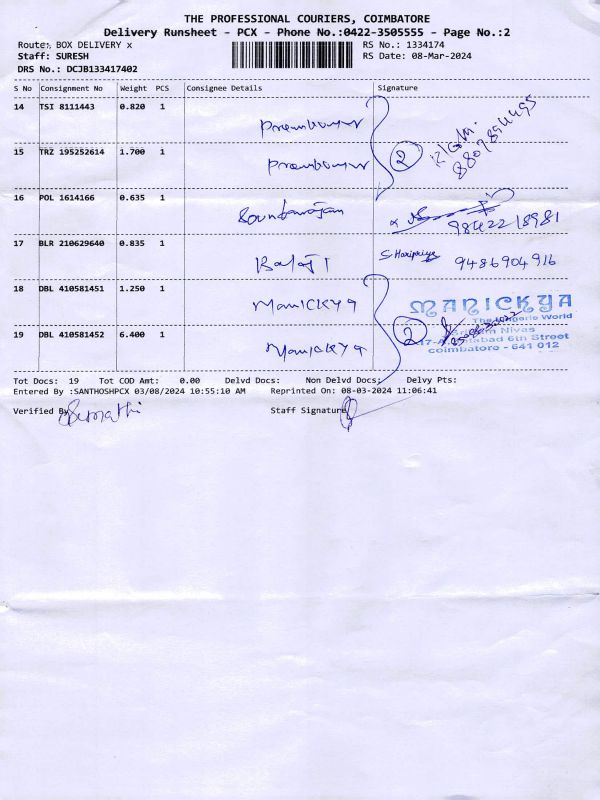 THE PROFESSIONAL COURIERS, COIMBATORE
Delivery Runsheet - PCX - Phone No.:0422-3505555 - Page No.:2
Route: BOX DELIVERY x RS No.: 1334174
Staff: SURESH RS Date: 08-Mar-2024
DRS No.: DCJB133417402
S No Consignment No Weight PCS Consignee Details Signature
14 TSI 8111443 0.820 1
15 TRZ 195252614 1.700 1 2
16 POL 1614166 0.635 1 Soundarajan 9842218981
17 BLR 210629640 0.835 1 Balaji S. Haripriya 9486904916
18 DBL 410581451 1.250 1 Manickya
MANICKYA
World
19 DBL 410581452 6.400 1 Manickya 2
Nivas
6th Street
coimbatore - 641 012
Tot Docs: 19 Tot COD Amt: 0.00 Delvd Docs: Non Delvd Docs: Delvy Pts:
Entered By :SANTHOSHPCX 03/08/2024 10:55:10 AM Reprinted On: 08-03-2024 11:06:41
Verified By Sumathi Staff Signature